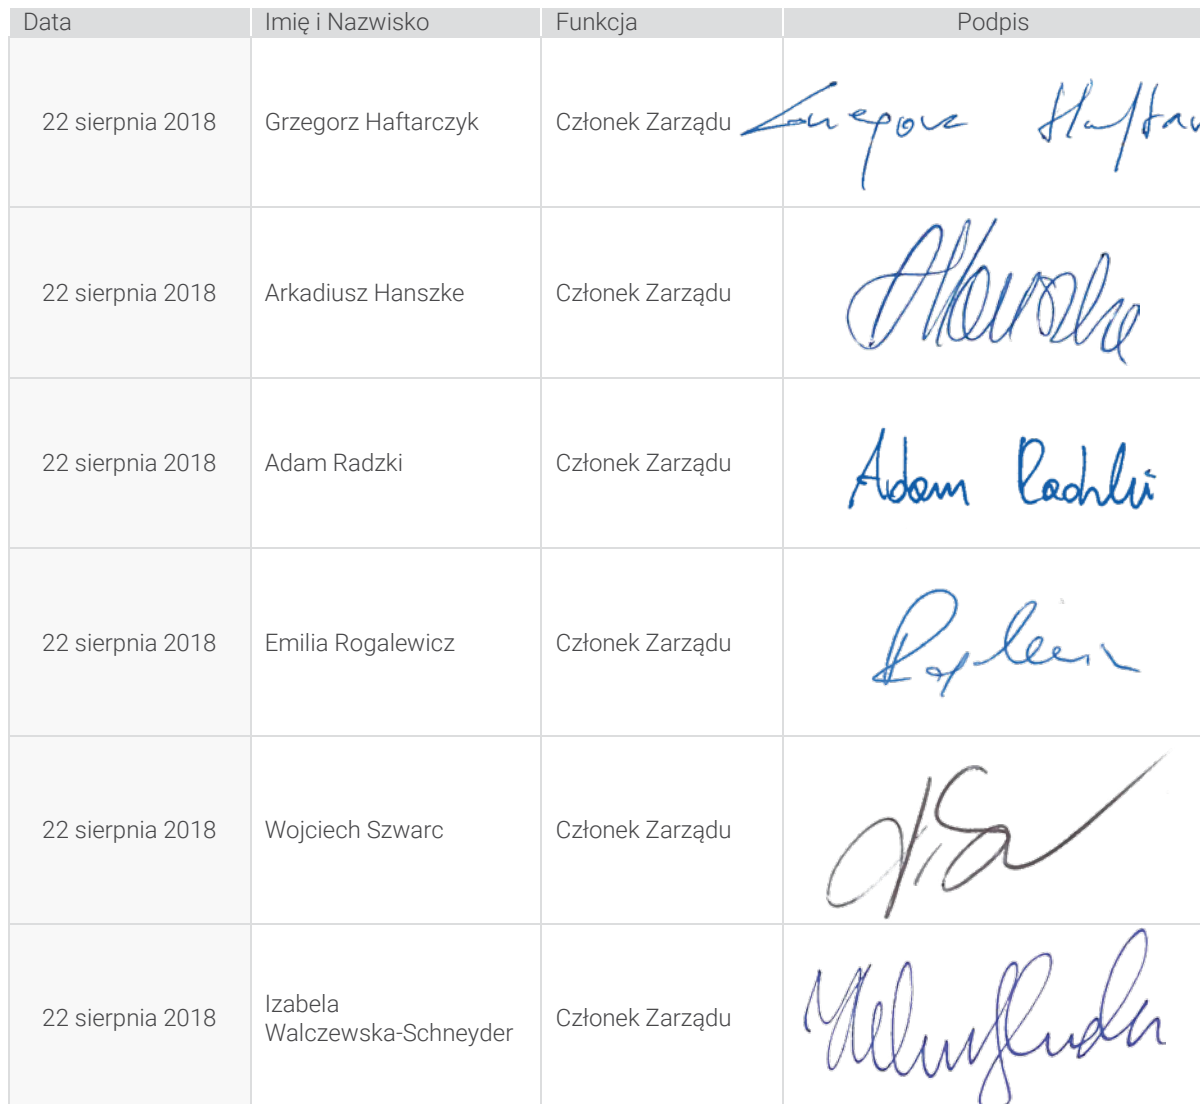 Data Imię i Nazwisko Funkcja Podpis
22 sierpnia 2018 Grzegorz Haftarczyk Członek Zarządu Grzegorz Haftar
22 sierpnia 2018 Arkadiusz Hanszke Członek Zarządu AHanszke
22 sierpnia 2018 Adam Radzki Członek Zarządu Adam Radzki
22 sierpnia 2018 Emilia Rogalewicz Członek Zarządu
22 sierpnia 2018 Wojciech Szwarc Członek Zarządu
22 sierpnia 2018 Izabela
Walczewska-Schneyder Członek Zarządu